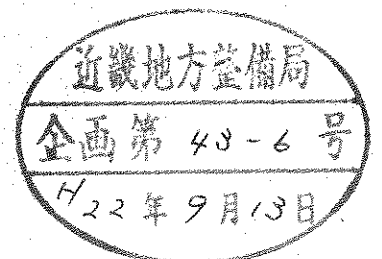 近畿地方整備局
企画第 43-6 号
H22年9月13日